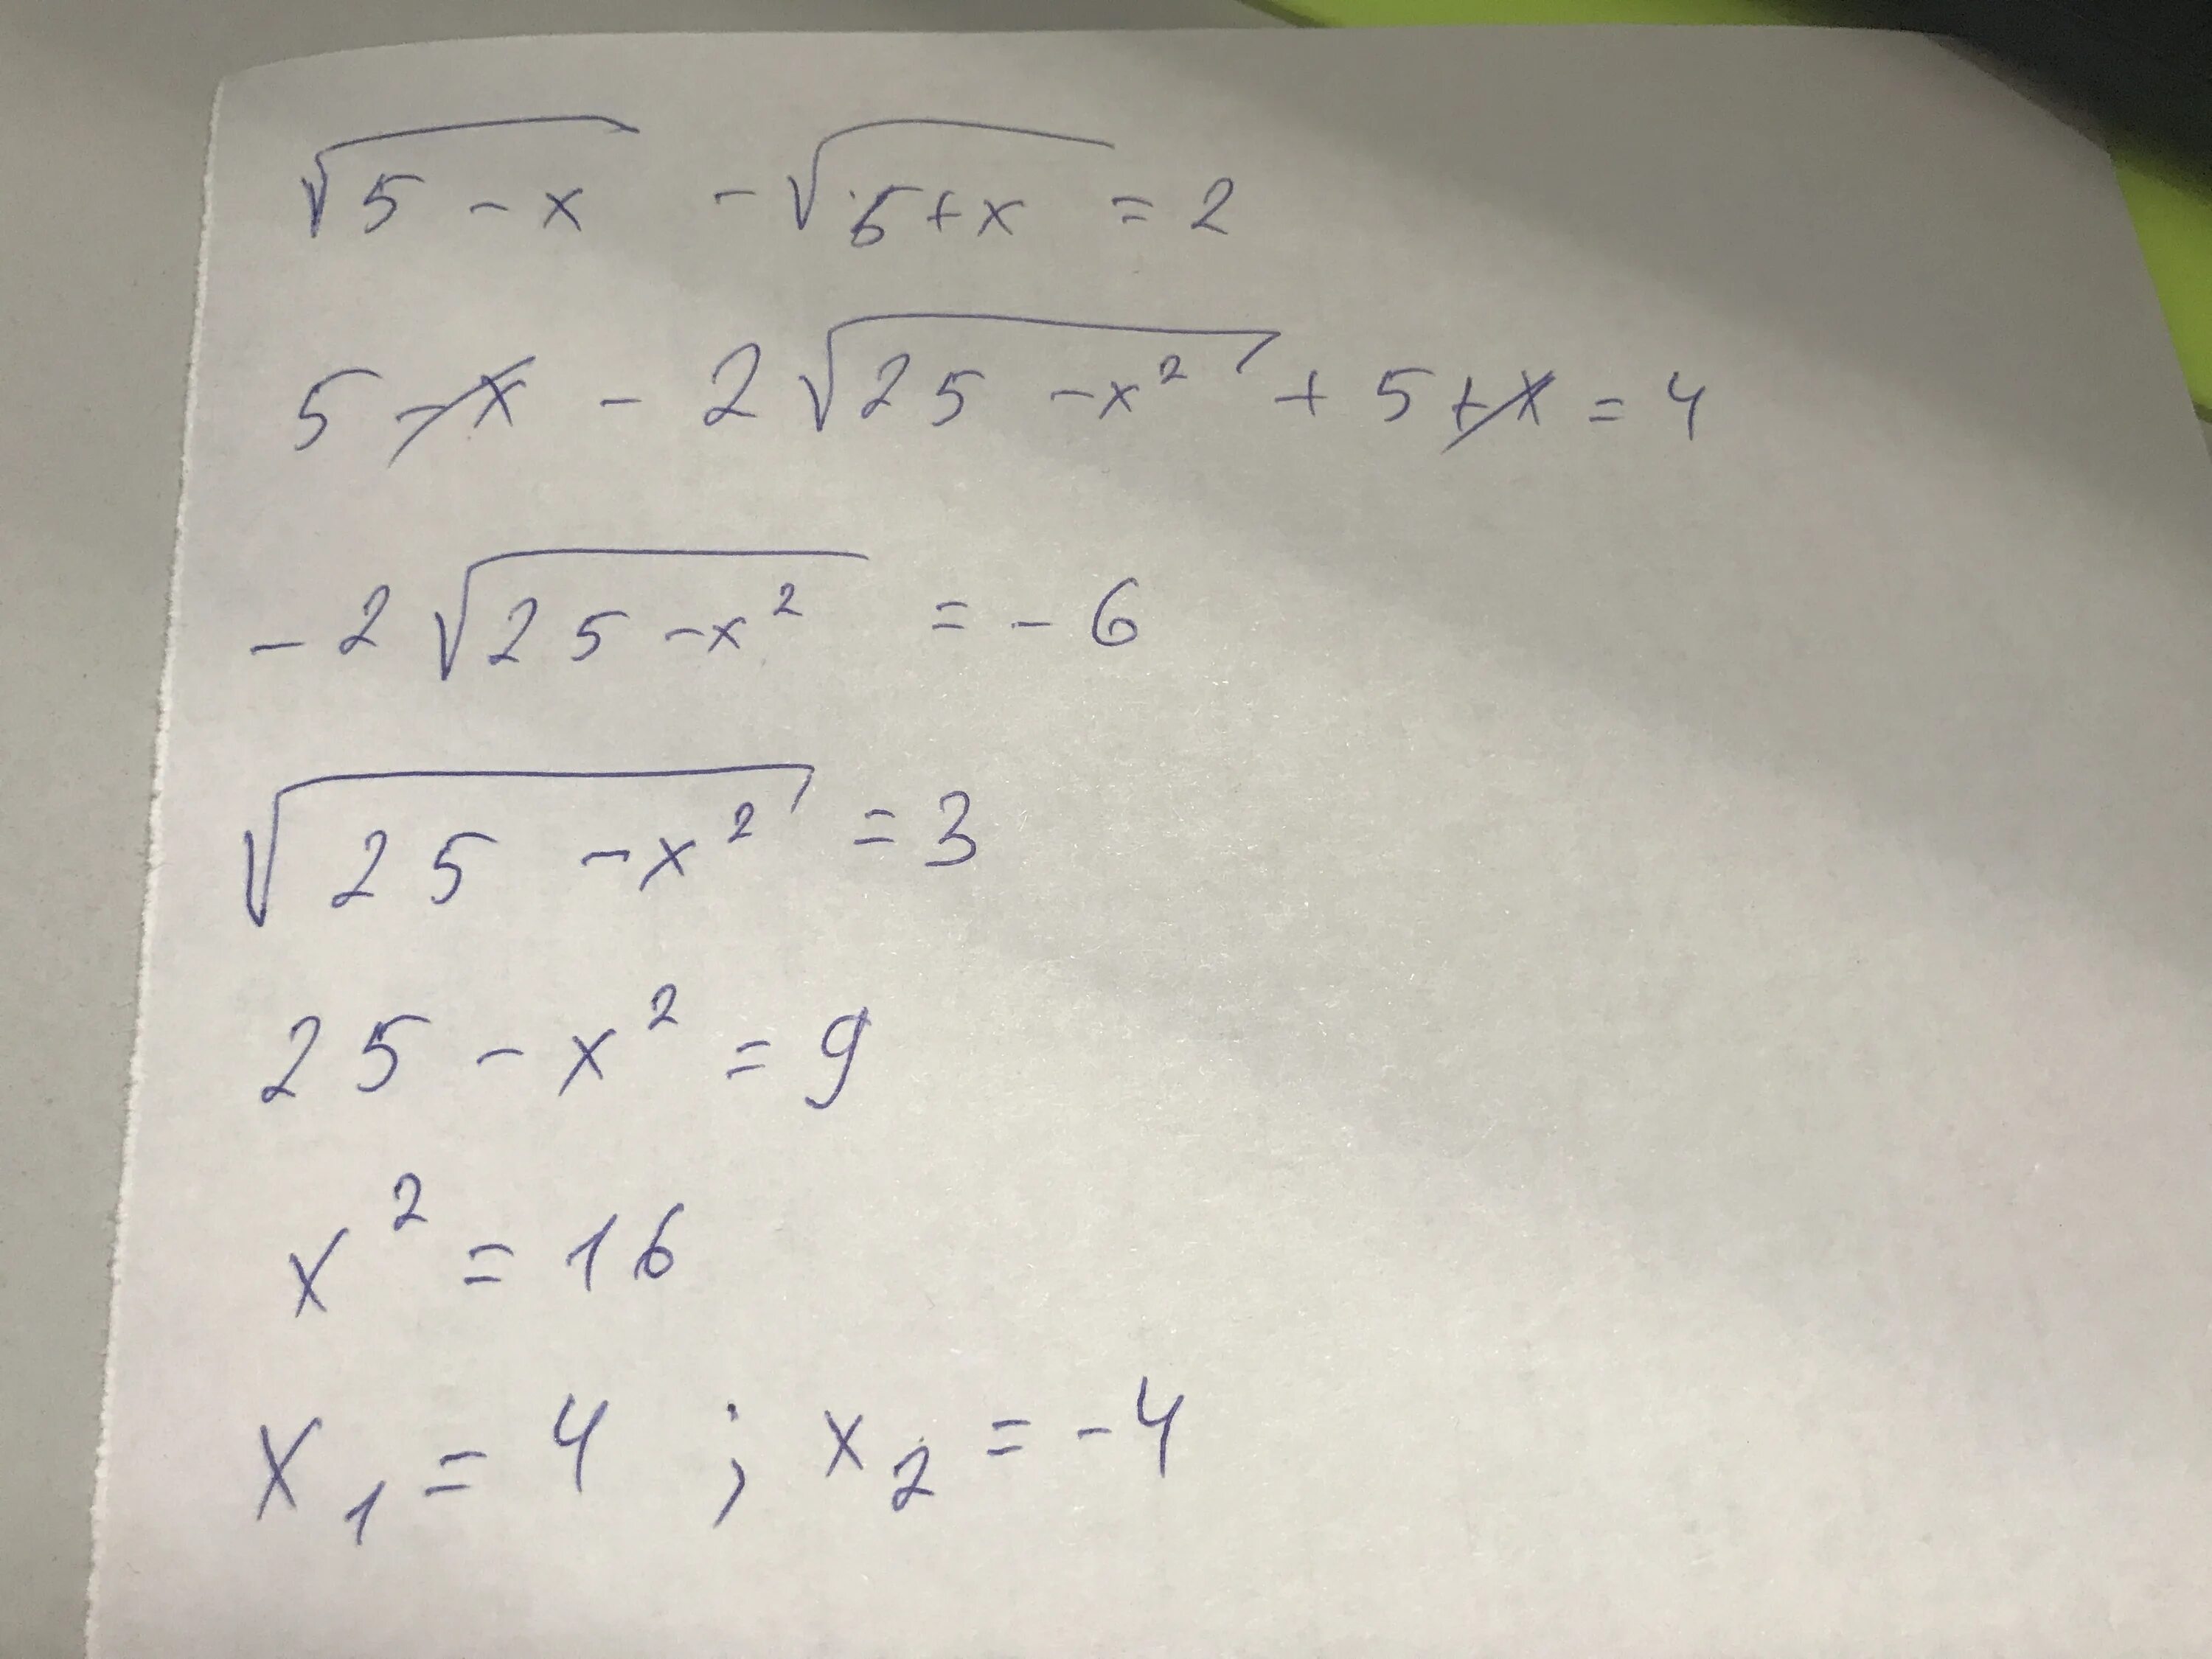 √5 - x - √5 + x = 2
5 - x - 2√25 - x² + 5 + x = 4
- 2√25 - x² = - 6
√25 - x² = 3
25 - x² = 9
x² = 16
x₁ = 4 ; x₂ = - 4